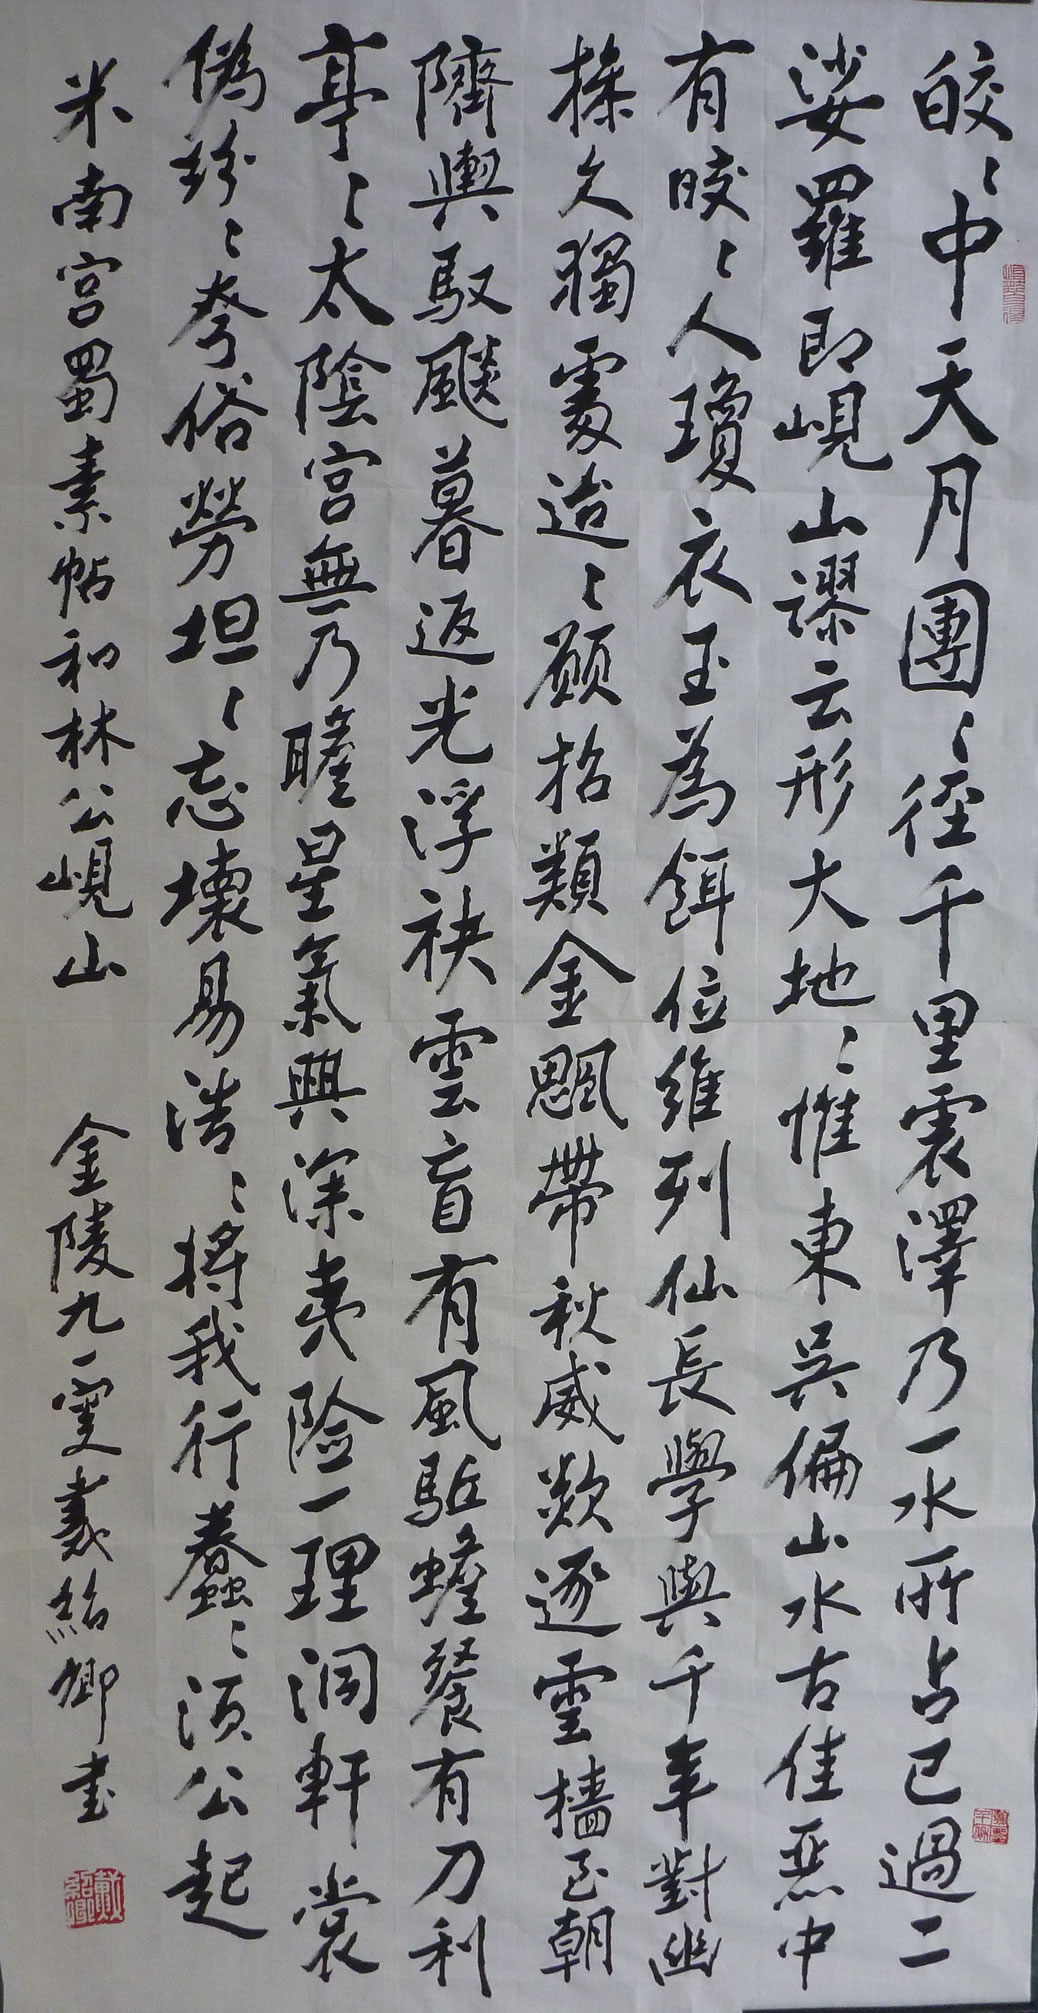 皎〻中天月團〻徑千里震澤乃一水所占已過二
娑羅即峴山謬云形大地〻惟東吳偏山水古佳丞中
有皎〻人瓊衣玉為餌位維列仙長學與千年對幽
操久獨處迨〻願招類金飃帶秋威欻逐雲檣至朝
隮輿馭飈暮返光浮袂雲盲有風駈蟾餮有刀利
亭〻太陰宮無乃瞻星氣興深夷險一理洞軒裳
偽紛〻夸俗勞坦〻忘壞易浩〻將我行蠢〻須公起
米南宮蜀素帖和林公峴山 金陵九一叟戴紹卿書